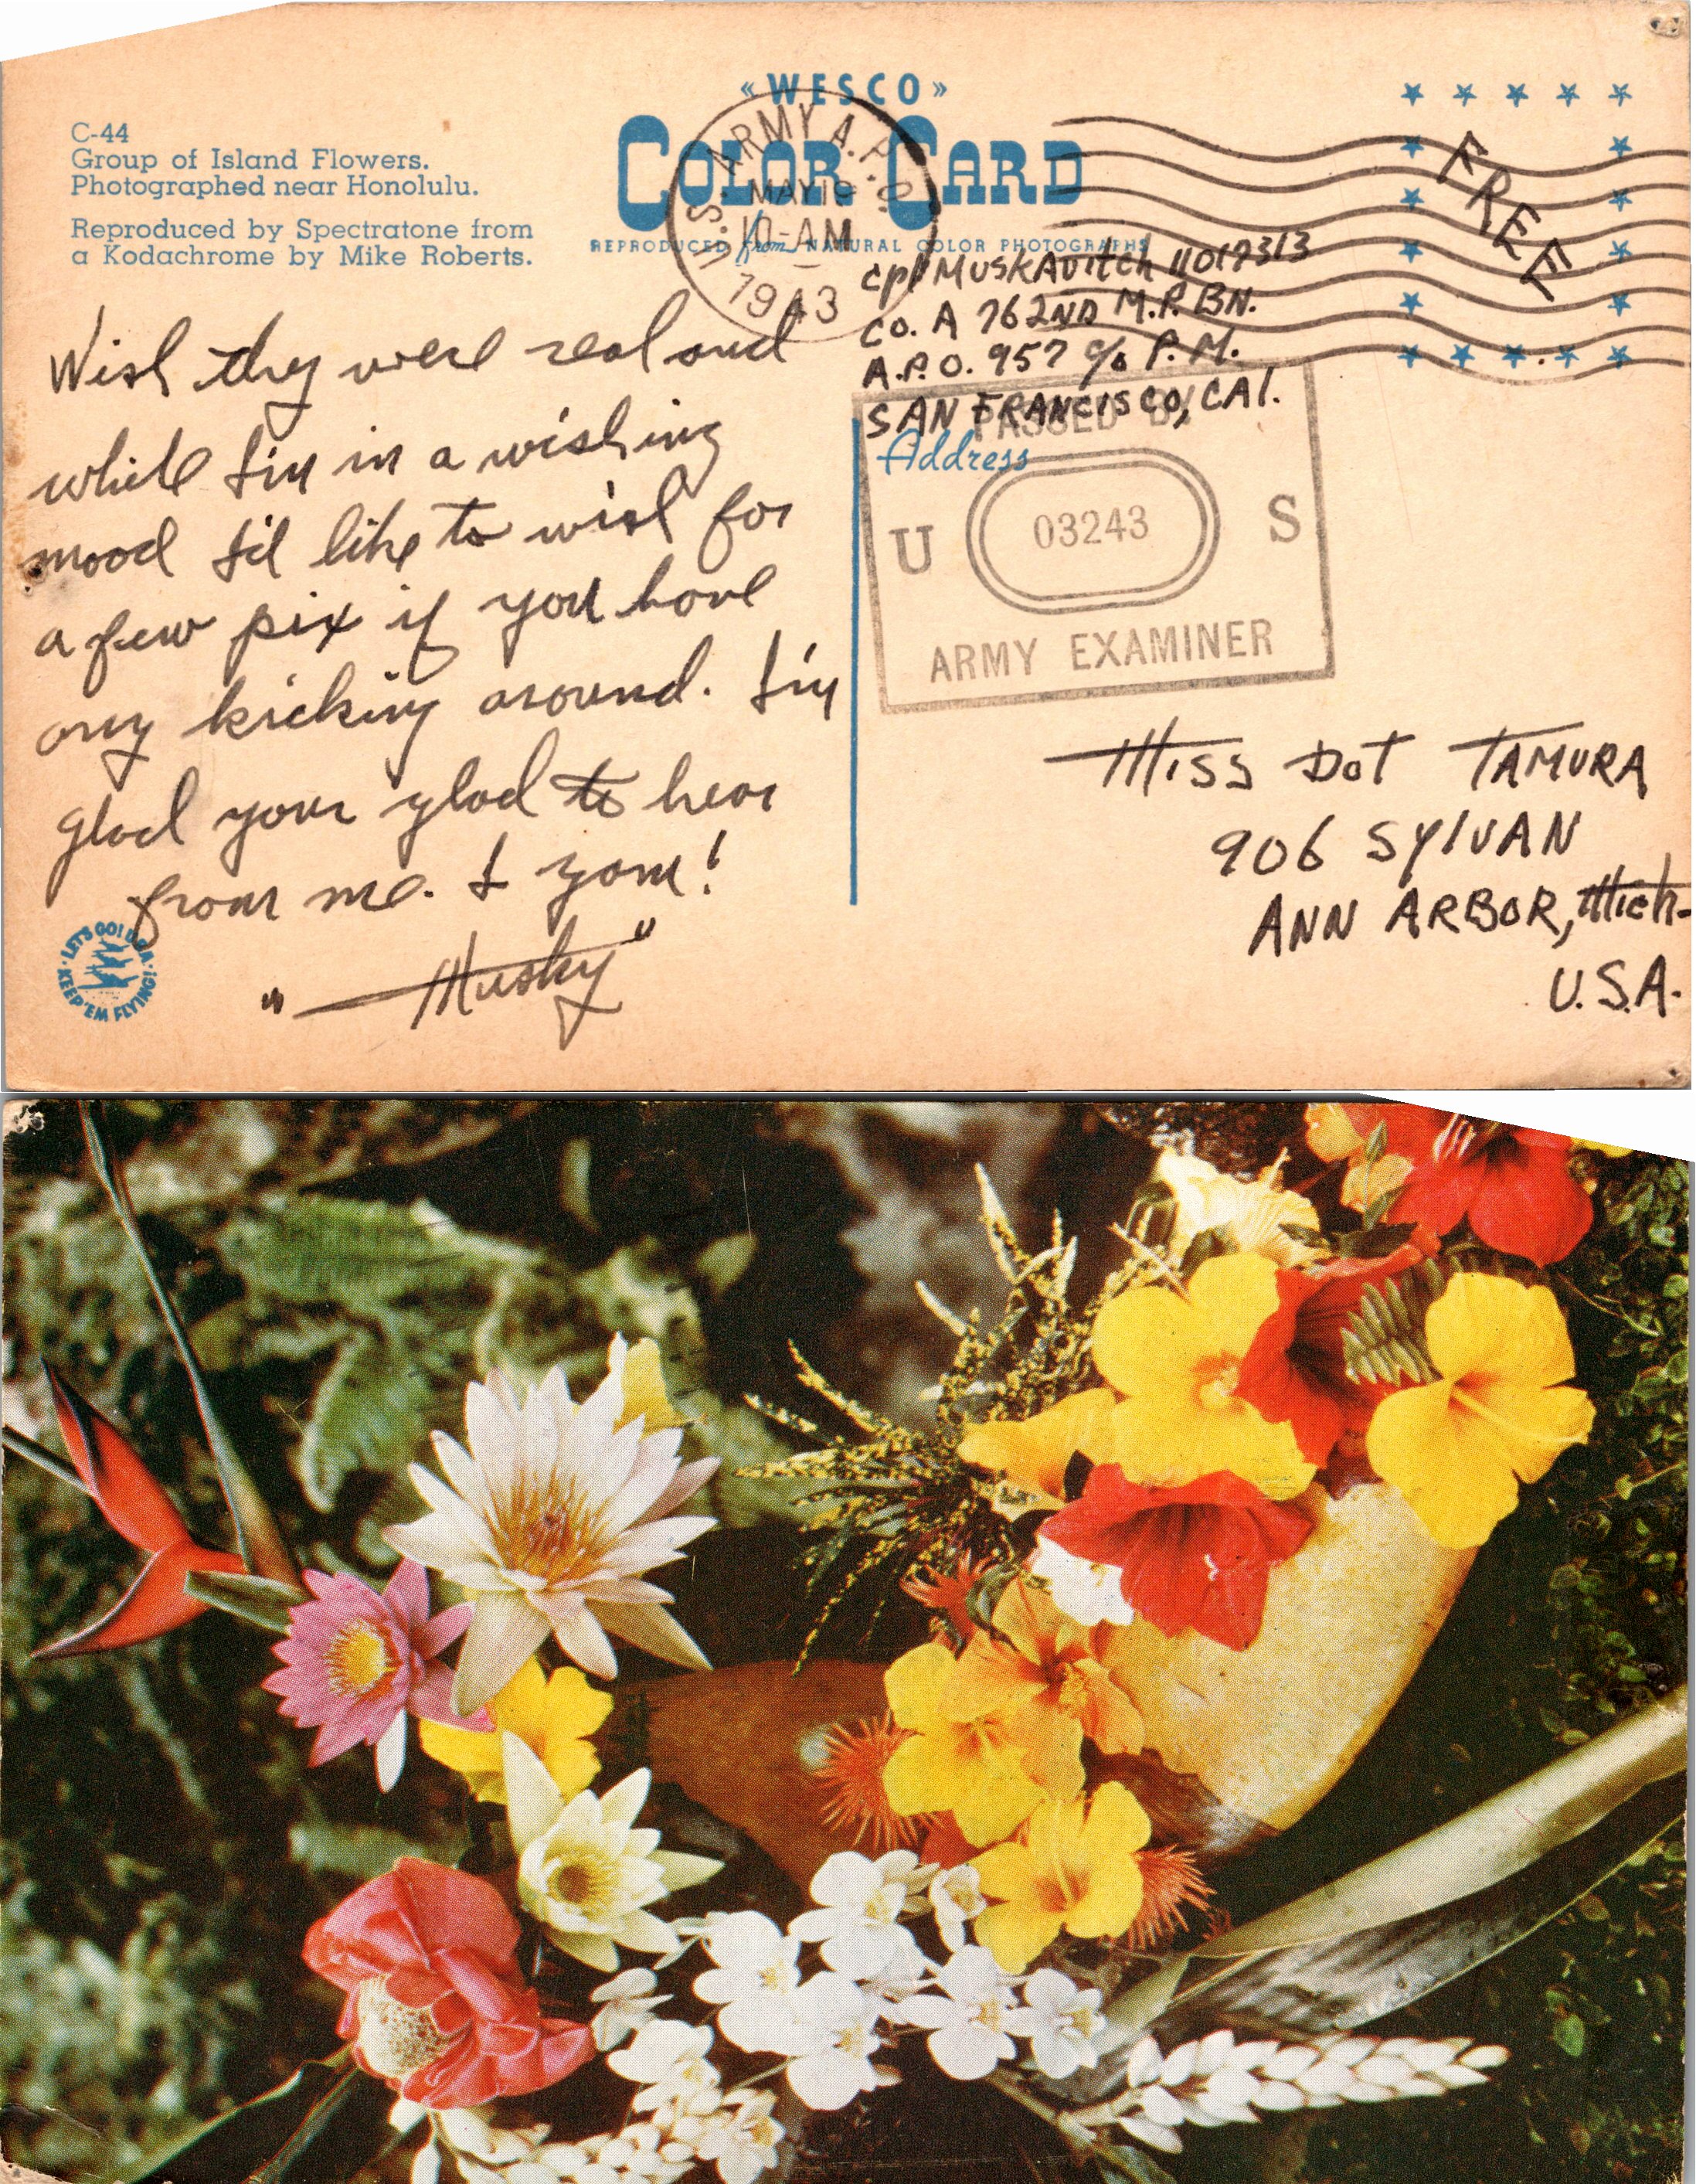 « WESCO »
COLOR CARD
REPRODUCED from NATURAL COLOR PHOTOGRAPHS
C-44
Group of Island Flowers.
Photographed near Honolulu.
Reproduced by Spectratone from
a Kodachrome by Mike Roberts.
ARMY A.P.O.
MAY 19
10-AM
1943
U.S.
FREE
cpl Muskavitch 11017313
Co. A 762ND M.P. BN.
A.P.O. 957 c/o P.M.
SAN FRANCISCO, CAl.
Address
PASSED BY
U 03243 S
ARMY EXAMINER
Wish they were real and
while I'm in a wishing
mood I'd like to wish for
a few pix if you have
any kicking around. I'm
glad your glad to hear
from me. I yam!
"— Musky"
Miss Dot TAMURA
906 SYlVAN
ANN ARBOR, Mich-
U.S.A.
LET'S GO! U.S.A.
KEEP 'EM FLYING!